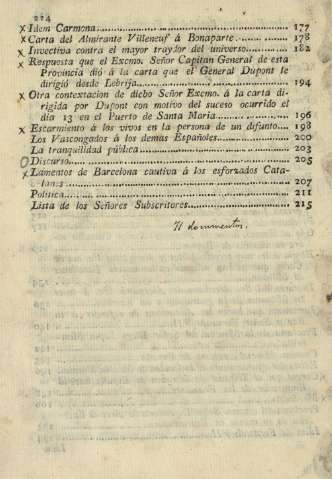 224
x Idem Carmona. 177
x Carta del Almirante Villeneuf á Bonaparte. 178
x Invectiva contra el mayor traydor del universo. 182
x Respuesta que el Excmo. Señor Capitan General de esta
Provincia dió á la carta que el General Dupont le
dirigió desde Lebrija. 194
x Otra contextacion de dicho Señor Excmo. á la carta di-
rigida por Dupont con motivo del suceso ocurrido el
dia 13 en el Puerto de Santa Maria. 196
x Escarmiento á los vivos en la persona de un difunto. 198
Los Vascongados á los demas Españoles. 200
La tranquilidad pública. 203
O Discurso. 205
x Lamentos de Barcelona cautiva á los esforzados Cata-
lanes. 207
Política. 211
Lista de los Señores Subscritores. 215
documentos.